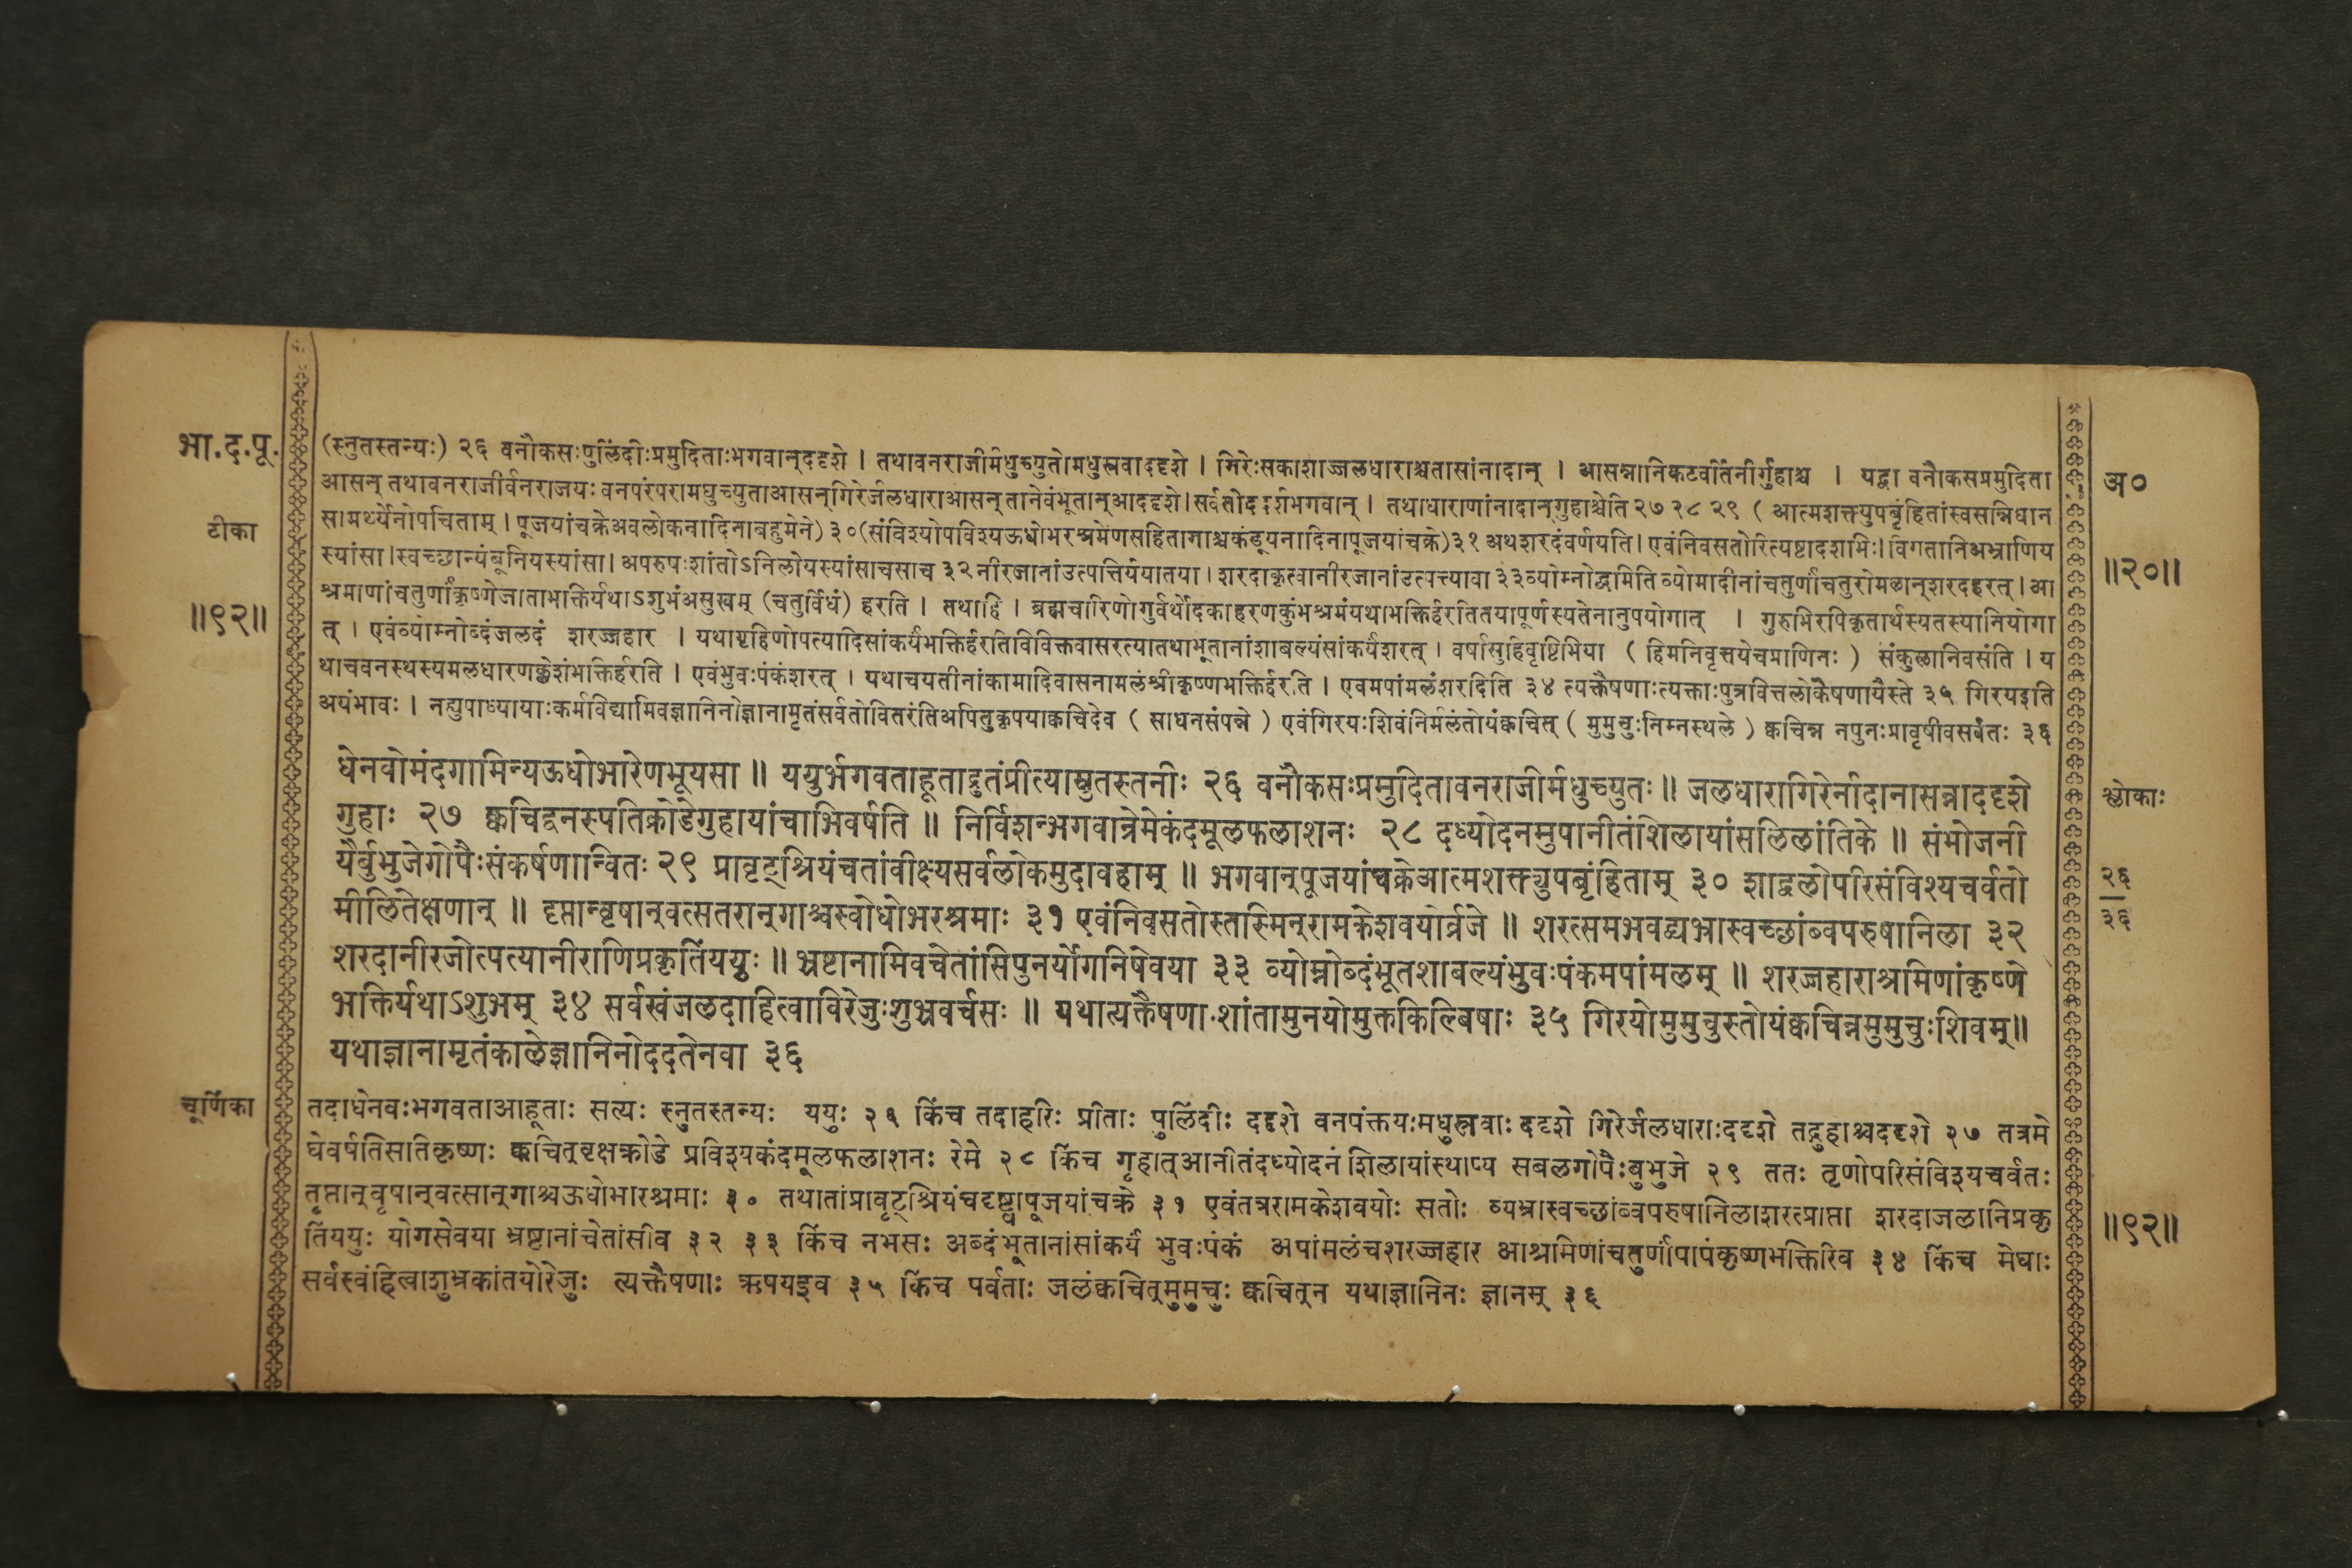 भा.द.पू.
टीका
॥९२॥
(स्नुतस्तन्यः) २६ वनौकसःपुलिंदीःप्रमुदिताःभगवान्ददृशे । तथावनराजीर्मधुच्युतोमधुस्रवाददृशे । गिरेःसकाशाज्जलधाराश्चतासांनादान् । आसन्नानिकटवर्तिनीर्गुहाश्च । यद्वा वनौकसप्रमुदिता
आसन् तथावनराजीर्वनराजयः वनपरंपरामधुच्युताआसन्गिरेर्जलधाराआसन् तानेवंभूतान्आददृशे।सर्वतोददर्शभगवान् । तथाधाराणांनादान्गुहाश्चेति २७ २८ २९ ( आत्मशक्त्युपबृंहितांस्वसन्निधान
सामर्थ्येनोपचिताम् । पूजयांचक्रेअवलोकनादिनाबहुमेने) ३०(संविश्योपविश्यऊधोभरश्रमेणसहितागाश्चकंडूयनादिनापूजयांचक्रे)३१ अथशरदंवर्णयति। एवंनिवसतोरित्यष्टादशभिः। विगतानिअभ्राणिय
स्यांसा।स्वच्छान्यंबूनियस्यांसा। अपरुषःशांतोऽनिलोयस्यांसाचसाच ३२ नीरजानांउत्पत्तिर्ययातया। शरदाकृत्वानीरजानांउत्पत्त्यावा ३३व्योम्नोब्दमिति व्योमादीनांचतुर्णांचतुरोमळान्शरदहरत्। आ
श्रमाणांचतुर्णांकृष्णेजाताभक्तिर्यथाऽशुभंअसुखम् (चतुर्विधं) हरति । तथाहि । ब्रह्मचारिणोगुर्वर्थोदकाहरणकुंभश्रमंयथाभक्तिर्हरतितयापूर्णस्यतेनानुपयोगात् । गुरुभिरपिकृतार्थस्यतस्यानियोगा
त् । एवंव्योम्नोब्दंजलदं शरज्जहार । यथागृहिणोपत्यादिसांकर्यंभक्तिर्हरतिविविक्तवासरत्यातथाभूतानांशाबल्यंसांकर्यंशरत् । वर्षासुहिवृष्टिभिया ( हिमनिवृत्तयेचप्राणिनः ) संकुलानिवसंति । य
थाचवनस्थस्यमलधारणक्लेशंभक्तिर्हरति । एवंभुवःपंकंशरत् । यथाचयतीनांकामादिवासनामलंश्रीकृष्णभक्तिर्हरति । एवमपांमलंशरदिति ३४ त्यक्तैषणाःत्यक्ताःपुत्रवित्तलोकैषणायैस्ते ३५ गिरयइति
अयंभावः । नह्युपाध्यायाःकर्मविद्यामिवज्ञानिनोज्ञानामृतंसर्वतोवितरंतिअपितुकृपयाक्वचिदेव ( साधनसंपन्ने ) एवंगिरयःशिवंनिर्मलंतोयंक्वचित् ( मुमुचुःनिम्नस्थले ) क्वचिन्न नपुनःप्रावृषीवसर्वतः ३६
धेनवोमंदगामिन्यऊधोभारेणभूयसा ॥ ययुर्भगवताहूताद्रुतंप्रीत्यास्नुतस्तनीः २६ वनौकसःप्रमुदितावनराजीर्मधुच्युतः॥ जलधारागिरेर्नादानासन्नाददृशे
गुहाः २७ क्वचिद्वनस्पतिक्रोडेगुहायांचाभिवर्षति ॥ निर्विशन्भगवान्रेमेकंदमूलफलाशनः २८ दध्योदनमुपानीतंशिलायांसलिलांतिके ॥ संभोजनी
यैर्बुभुजेगोपैःसंकर्षणान्वितः २९ प्रावृट्श्रियंचतांवीक्ष्यसर्वलोकमुदावहाम् ॥ भगवान्पूजयांचक्रेआत्मशक्त्युपबृंहिताम् ३० शाद्वलोपरिसंविश्यचर्वतो
मीलितेक्षणान् ॥ तृप्तान्वृषान्वत्सतरान्गाश्चस्वोधोभरश्रमाः ३१ एवंनिवसतोस्तस्मिन्रामकेशवयोर्व्रजे ॥ शरत्समभवद्व्यभ्रास्वच्छांब्वपरुषानिला ३२
शरदानीरजोत्पत्यानीराणिप्रकृतिंययुः ॥ भ्रष्टानामिवचेतांसिपुनर्योगनिषेवया ३३ व्योम्नोब्दंभूतशाबल्यंभुवःपंकमपांमलम् ॥ शरज्जहाराश्रमिणांकृष्णे
भक्तिर्यथाऽशुभम् ३४ सर्वस्वंजलदाहित्वाविरेजुःशुभ्रवर्चसः ॥ यथात्यक्तैषणाःशांतामुनयोमुक्तकिल्बिषाः ३५ गिरयोमुमुचुस्तोयंक्वचिन्नमुमुचुःशिवम्॥
यथाज्ञानामृतंकालेज्ञानिनोददतेनवा ३६
चूर्णिका
तदाधेनवःभगवताआहूताः सत्यः स्नुतस्तन्यः ययुः २६ किंच तदाहरिः प्रीताः पुलिंदीः ददृशे वनपंक्तयःमधुस्रवाः ददृशे गिरेर्जलधाराःददृशे तद्गुहाश्चददृशे २७ तत्रमे
घेवर्षतिसतिकृष्णः क्वचित्वृक्षक्रोडे प्रविश्यकंदमूलफलाशनः रेमे २८ किंच गृहात्आनीतंदध्योदनं शिलायांस्थाप्य सबलगोपैःबुभुजे २९ ततः तृणोपरिसंविश्यचर्वतः
तृप्तान्वृषान्वत्सान्गाश्चऊधोभारश्रमाः ३० तथातांप्रावृट्श्रियंचदृष्ट्वापूजयांचक्रे ३१ एवंतत्ररामकेशवयोः सतोः व्यभ्रास्वच्छांब्वपरुषानिलाशरत्प्राप्ता शरदाजलानिप्रकृ
तिंययुः योगसेवया भ्रष्टानांचेतांसीव ३२ ३३ किंच नभसः अब्दंभूतानांसांकर्यं भुवःपंकं अपांमलंचशरज्जहार आश्रमिणांचतुर्णांपापंकृष्णभक्तिरिव ३४ किंच मेघाः
सर्वस्वंहित्वाशुभ्रकांतयोरेजुः त्यक्तैषणाः ऋषयइव ३५ किंच पर्वताः जलंक्वचित्मुमुचुः क्वचित्न यथाज्ञानिनः ज्ञानम् ३६
अ०
॥२०॥
श्लोकाः
२६
३६
॥९२॥